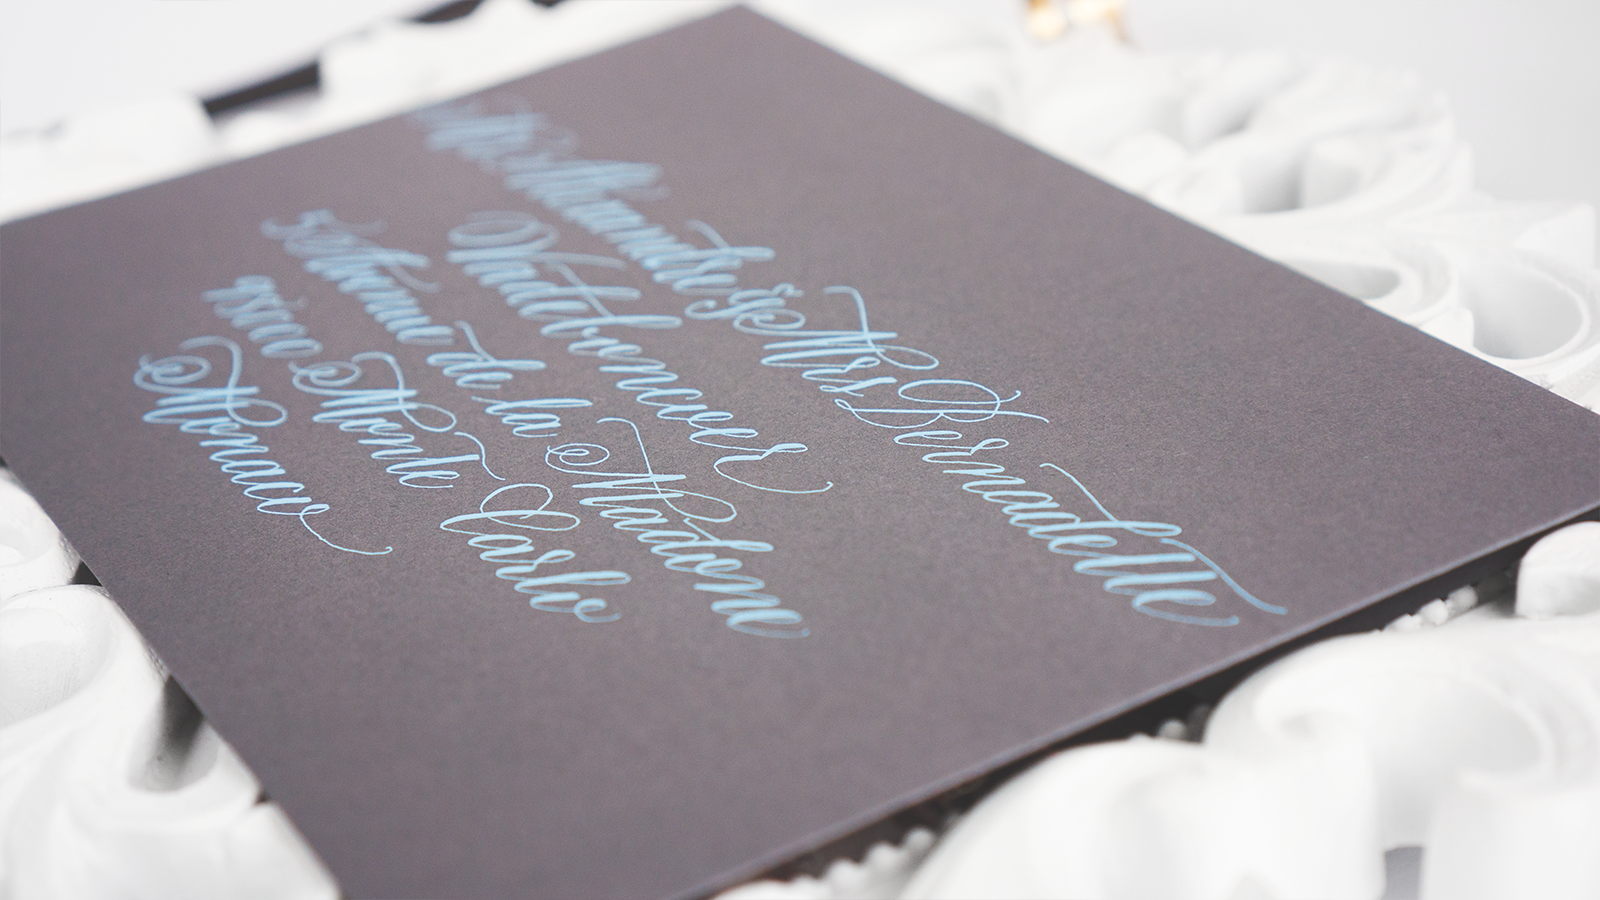 & Mrs Bernadette
5 Avenue de la Madone
98000 Monte Carlo
Monaco